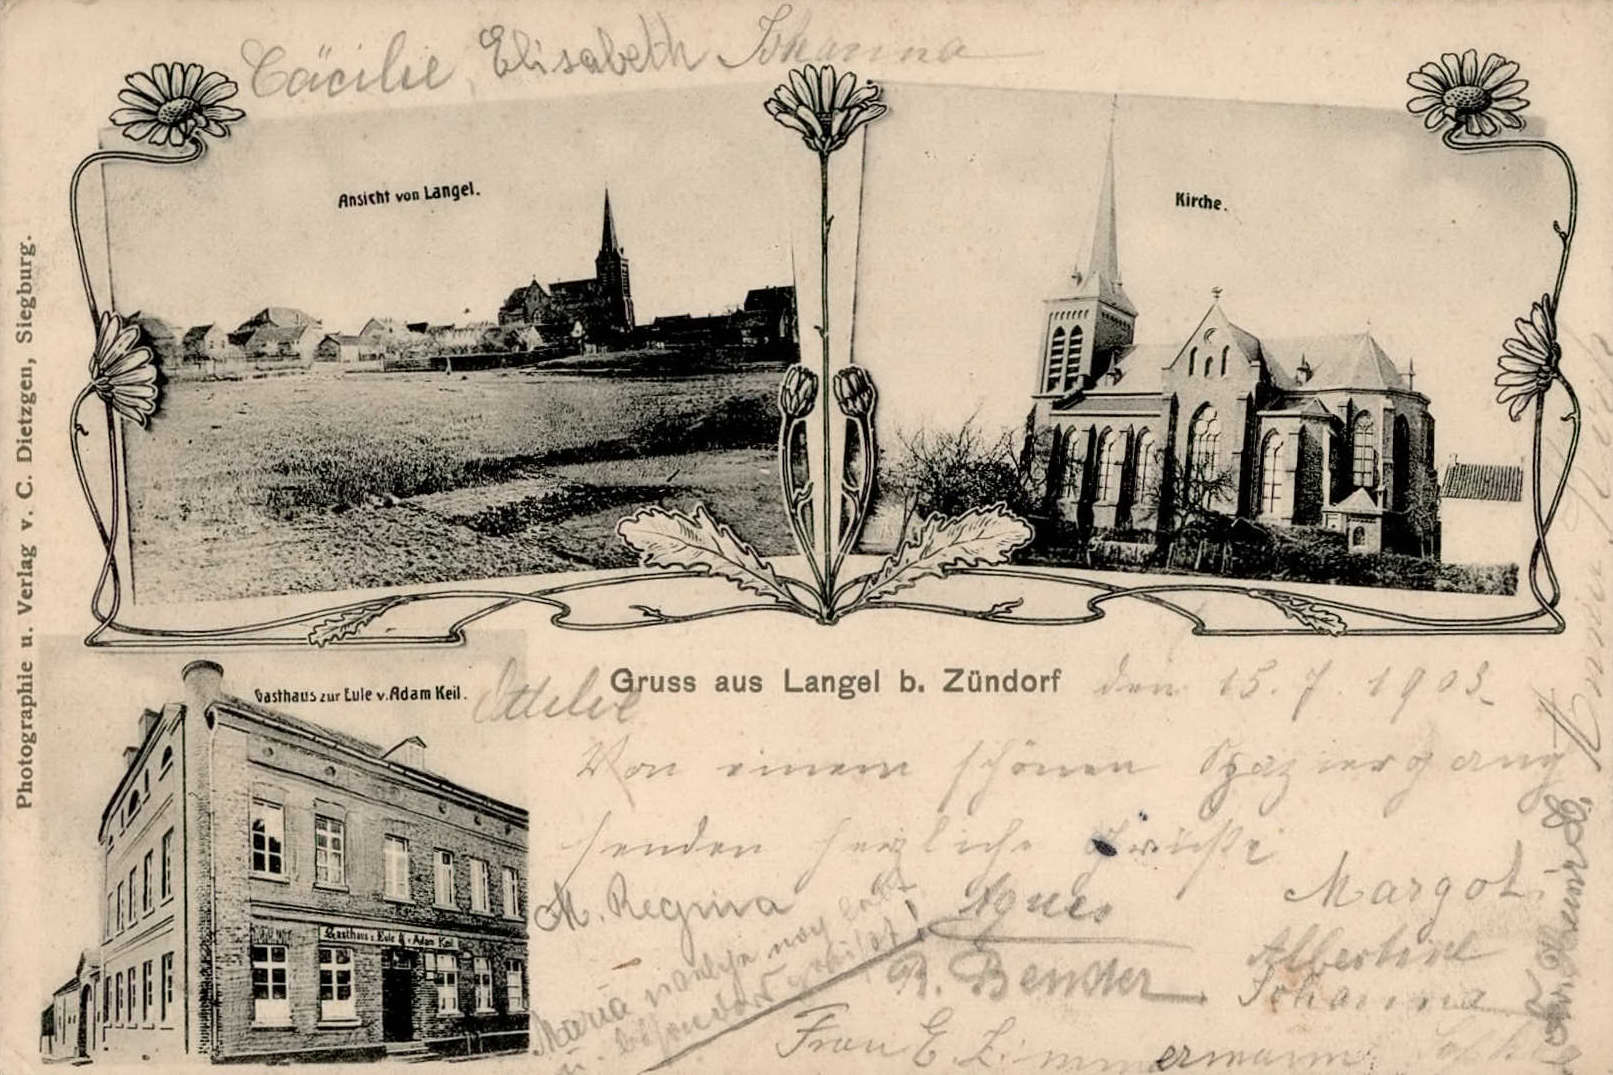 Cäcilie, Elisabeth Johanna
Ansicht von Langel.
Kirche.
Photographie u. Verlag v. C. Dietzgen, Siegburg.
Gasthaus zur Eule v. Adam Keil.
Gasthaus z. Eule v. Adam Keil
Ottilie
Gruss aus Langel b. Zündorf
den 15. 7. 1903
Von einem schönen Spaziergang
senden herzliche Grüße
M. Regina
Agnes
Margot
Albertine
Johanna
R. Bender
Maria
u.
Frau E. Zimmermann